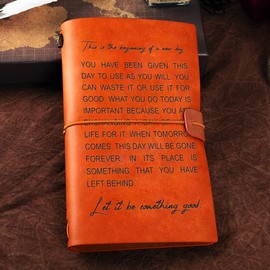 This is the beginning of a new day
YOU HAVE BEEN GIVEN THIS
DAY TO USE AS YOU WILL. YOU
CAN WASTE IT OR USE IT FOR
GOOD. WHAT YOU DO TODAY IS
IMPORTANT BECAUSE YOU
LIFE FOR IT. WHEN TOMORRO
COMES. THIS DAY WILL BE GONE
FOREVER. IN ITS PLACE IS
SOMETHING THAT YOU HAVE
LEFT BEHIND.
Let it be something good.